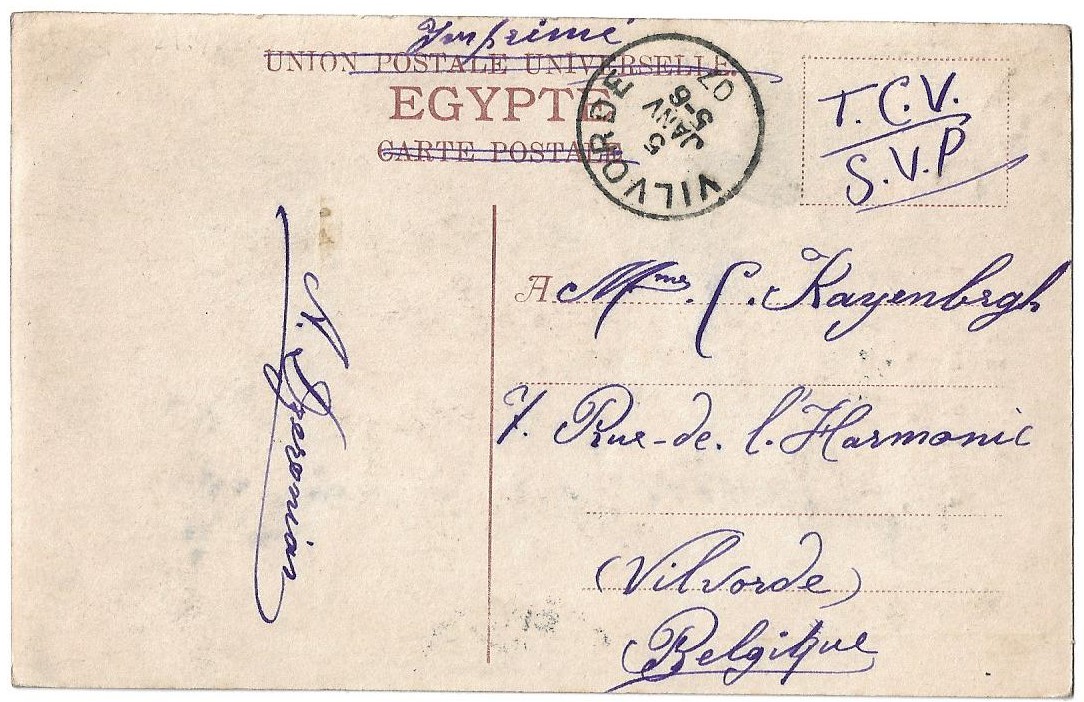 Imprimé
UNION POSTALE UNIVERSELLE.
EGYPTE
CARTE POSTALE
VILVORDE
5-6
5 JANV
07
T.C.V.
S.V.P
N.
A Mme. C. Kayenbergh
7. Rue-de. l'Harmonie
(Vilvorde)
Belgique